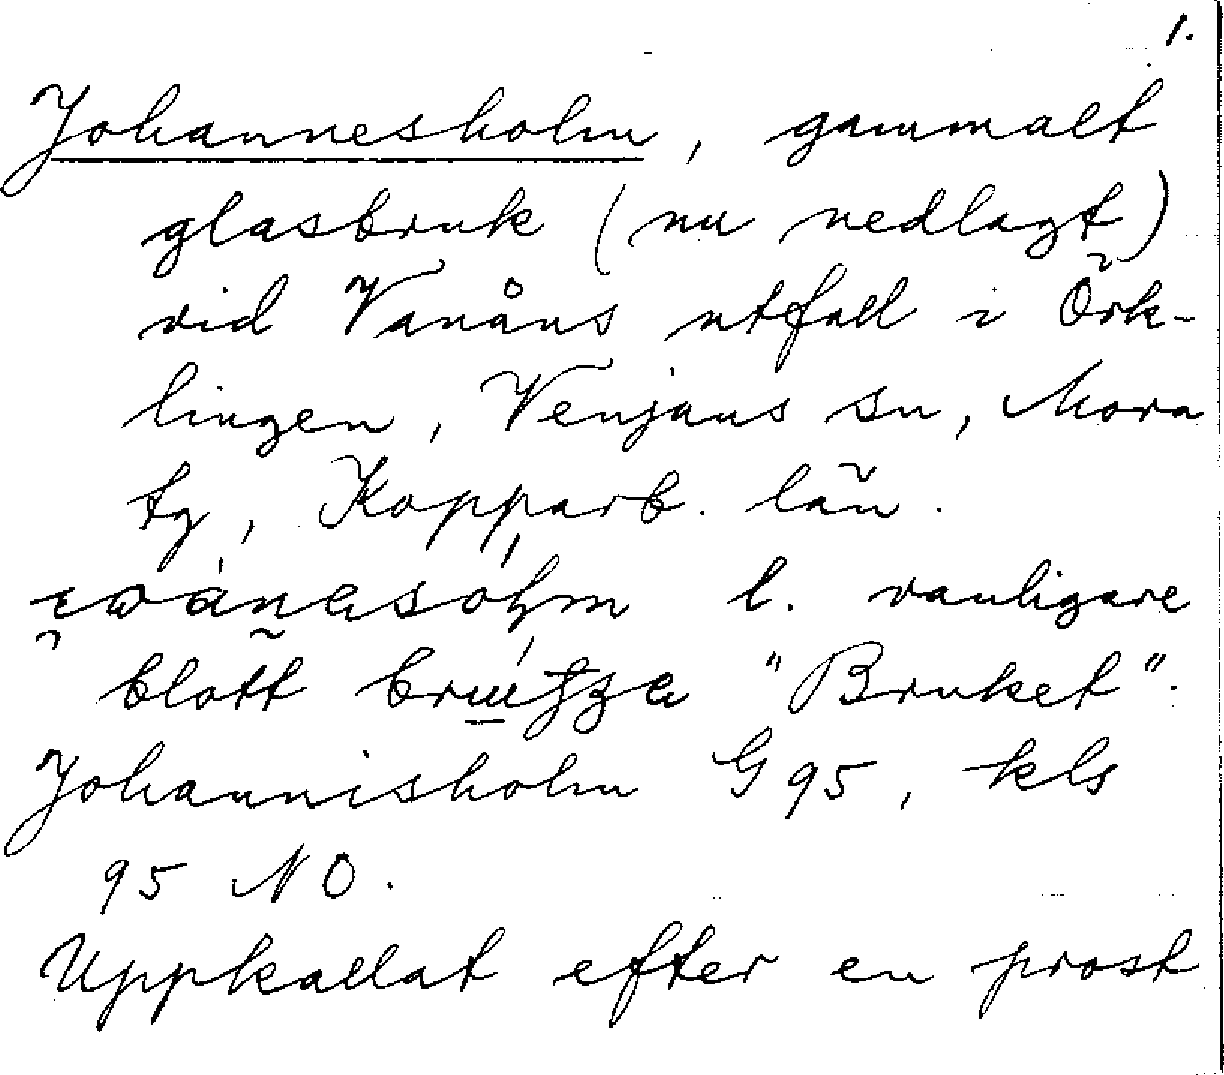 1.
Johannesholm, gammalt
glasbruk (nu nedlagt)
vid Vanåns utfall i Örk-
lingen, Venjans sn, Mora
tg, Kopparb. län.
l. vanligare
blott "Bruket".
Johannisholm G95, kls
95 NO.
Uppkallat efter en prost